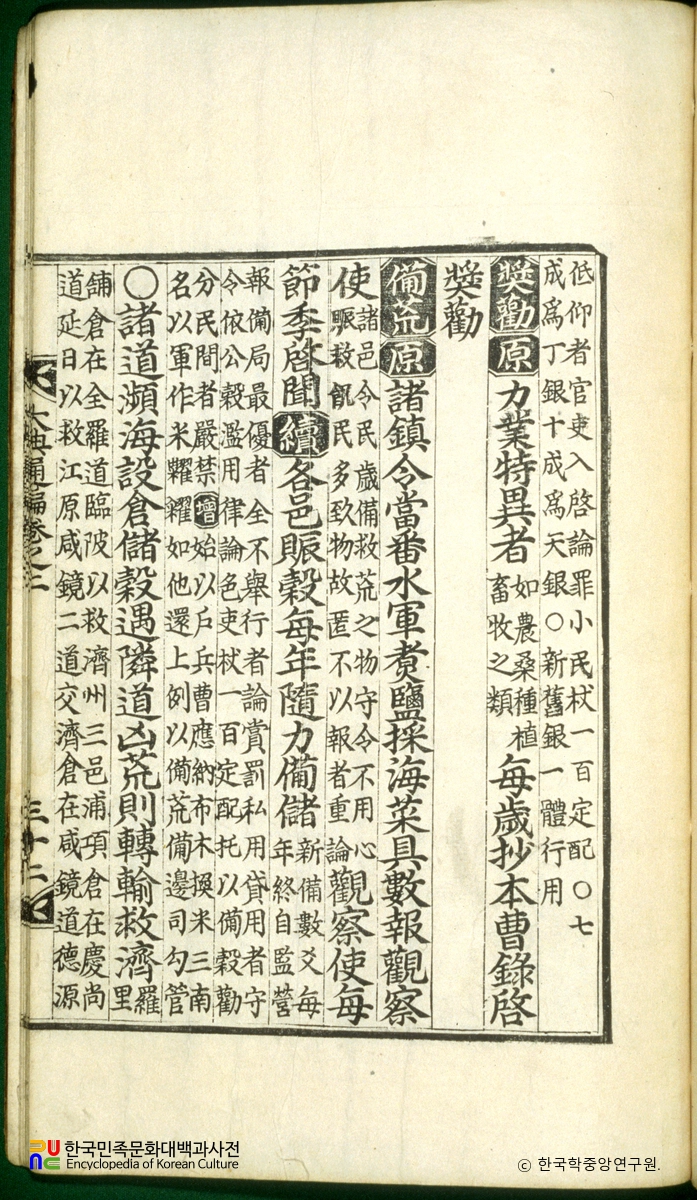 低仰者官吏入啓論罪小民杖一百定配○七
成爲丁銀十成爲天銀○新舊銀一體行用
奬勸 原 力業特異者 如農桑種植 畜牧之類 每歲抄本曹錄啓
奬勸
備荒 原 諸鎭令當番水軍煑鹽採海菜具數報觀察
使 諸邑令民歲備救荒之物守令不用心 賑救飢民多致物故匿不以報者重論 觀察使每
節季啓聞 續 各邑賑穀每年隨力備儲 新備數爻每 年終自監營
報備局最優者全不舉行者論賞罰私用貸用者守
令依公穀濫用律論色吏杖一百定配托以備穀勸
分民間者嚴禁 增 始以戶兵曹應納布木換米三南
名以軍作米糶糴如他還上例以備荒備邊司勾管
○諸道瀕海設倉儲穀遇隣道凶荒則轉輸救濟 羅 里
舖倉在全羅道臨陂以救濟州三邑浦項倉在慶尙
道延日以救江原咸鏡二道交濟倉在咸鏡道德源
大典通編卷之二 三十二
한국민족문화대백과사전
Encyclopedia of Korean Culture
© 한국학중앙연구원.